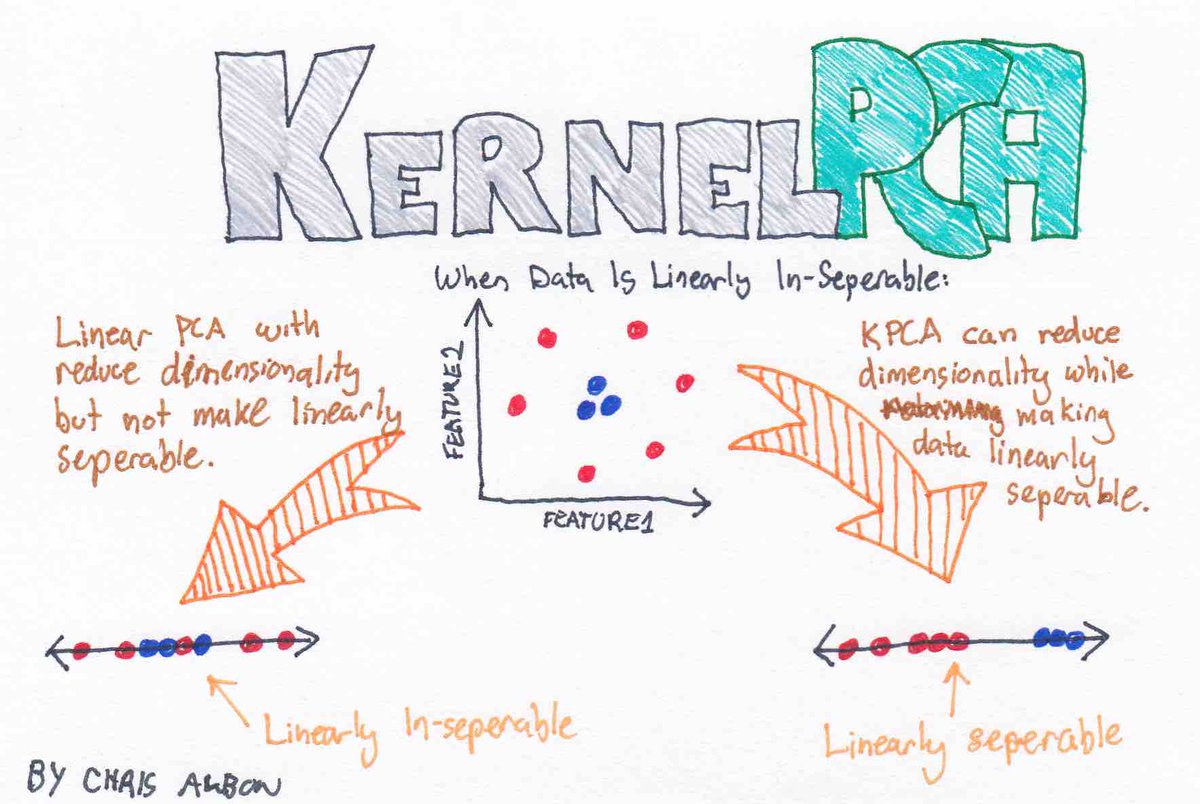 KERNEL PCA
When Data Is Linearly In-Seperable:
Linear PCA with
reduce dimensionality
but not make linearly
seperable.
FEATURE2
FEATURE1
KPCA can reduce
dimensionality while
making
data linearly
seperable.
Linearly In-seperable
Linearly seperable
BY CHRIS ALBON